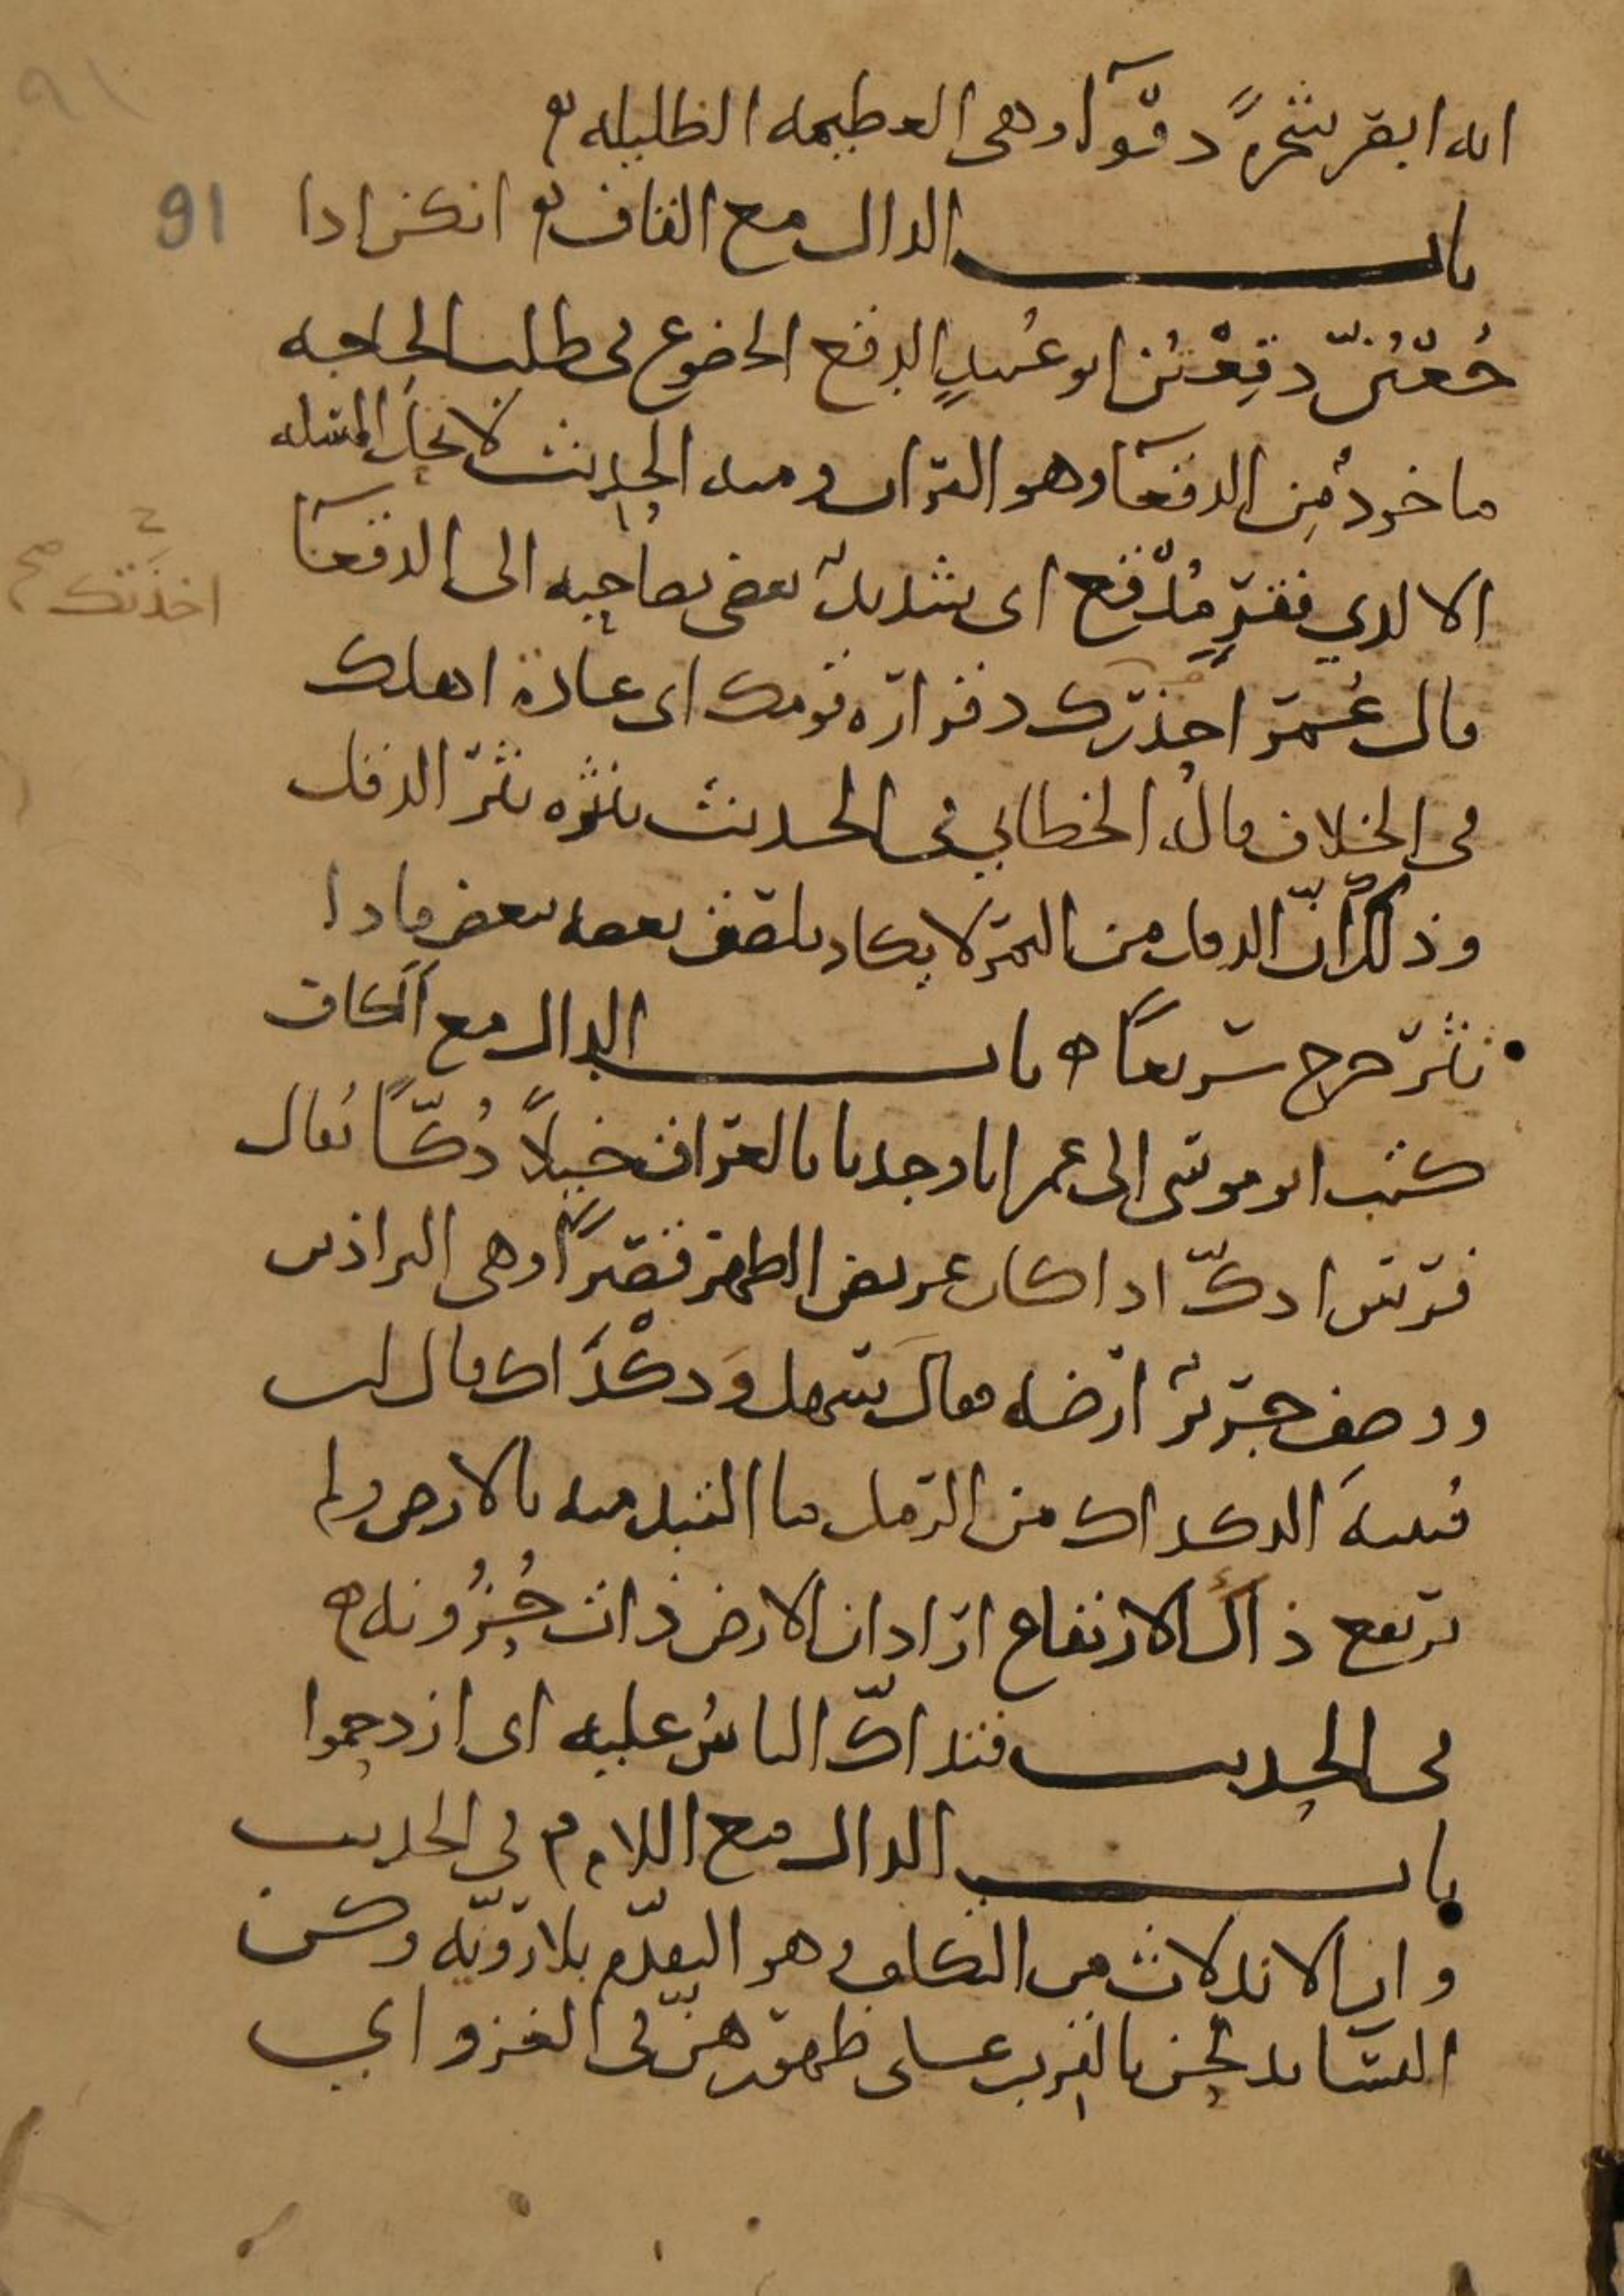 انه ابصر شجرة دفواء وهي العظيمة الظليلة
باب الدال مع القاف انكن اذا
91
جعتن دقعتن ابو عبيد الدقع الخضوع في طلب الحاجة
ماخوذ من الدقعاء وهو التراب ومنه الحديث لا تحل المسئلة
الا لذي فقر مدقع اي شديد يفضي بصاحبه الى الدقعاء
اخذتك صح
قال عمر احذرك دقرارة قومك اي عادة اهلك
في الخلاف قال الخطابي في الحديث ينثره نثر الدقل
وذلك ان الدقل من التمر لا يكاد يلصق بعضه ببعض فاذا
نثر خرج سريعا ه باب الدال مع الكاف
كتب ابو موسى الى عمر انا وجدنا بالعراق خيلا دكا يقال
فرس ادك اذا كان عريض الظهر قصيرا وهي البراذين
ووصف جرير ارضه فقال سهل ودكداك قال ابن
قتيبة الدكداك من الرمل ما التبد منه بالارض ولم
يرتفع ذاك الارتفاع اراد ان الارض ذات حزونة ه
في الحديث فتداك الناس عليه اي ازدحموا
باب الدال مع اللام في الحديث
وان الاندلاث من التكلف وهو التقدم بلا روية وكن
النساء يدلحن بالقرب على ظهورهن في الغزو اي